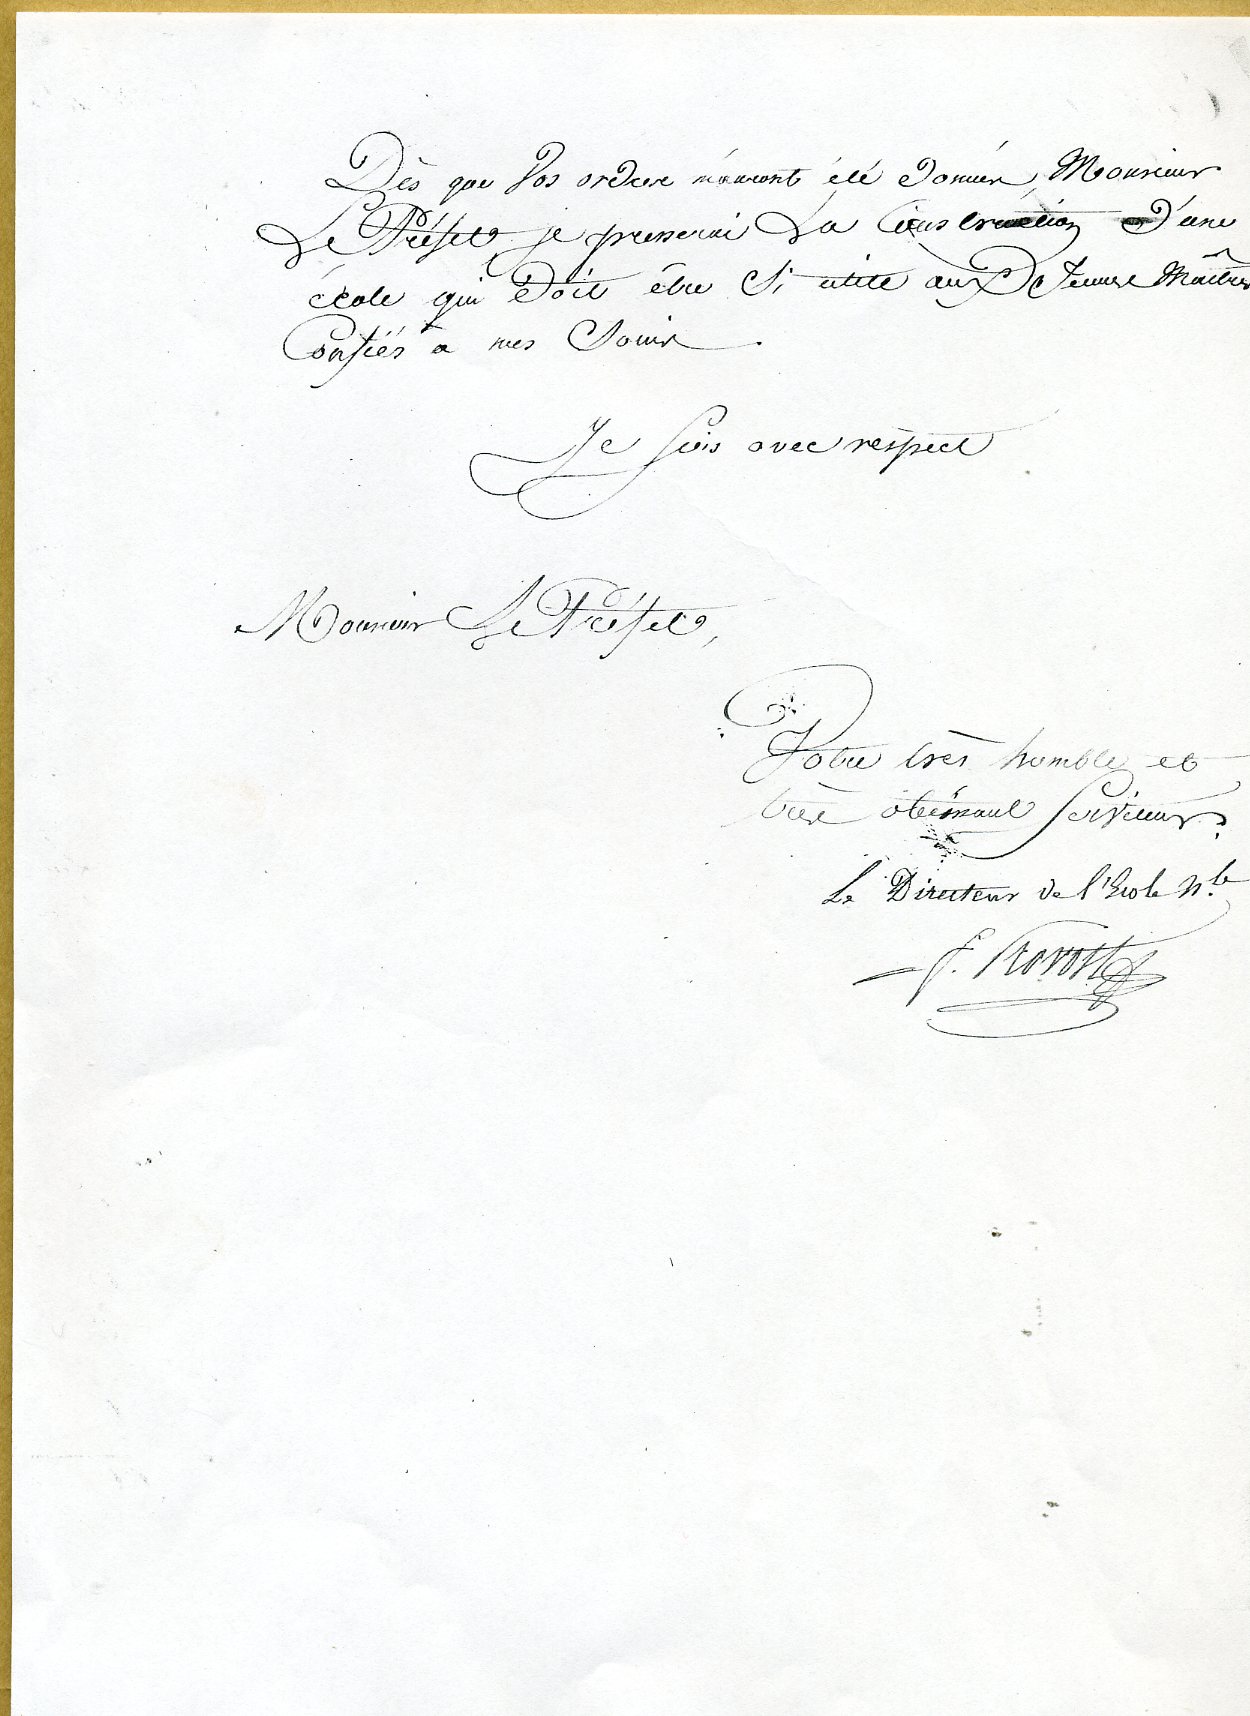 Dès que Vos ordres m'auront été donnés, Monsieur
Le Préfet, je presserai La Construction d'une
école qui doit être Si utile aux Jeunes Maîtres
Confiés à mes Soins.
Je suis avec respect
Monsieur Le Préfet,
Votre très humble et
très obéissant Serviteur.
Le Directeur de l'Ecole N.le
F. Provost